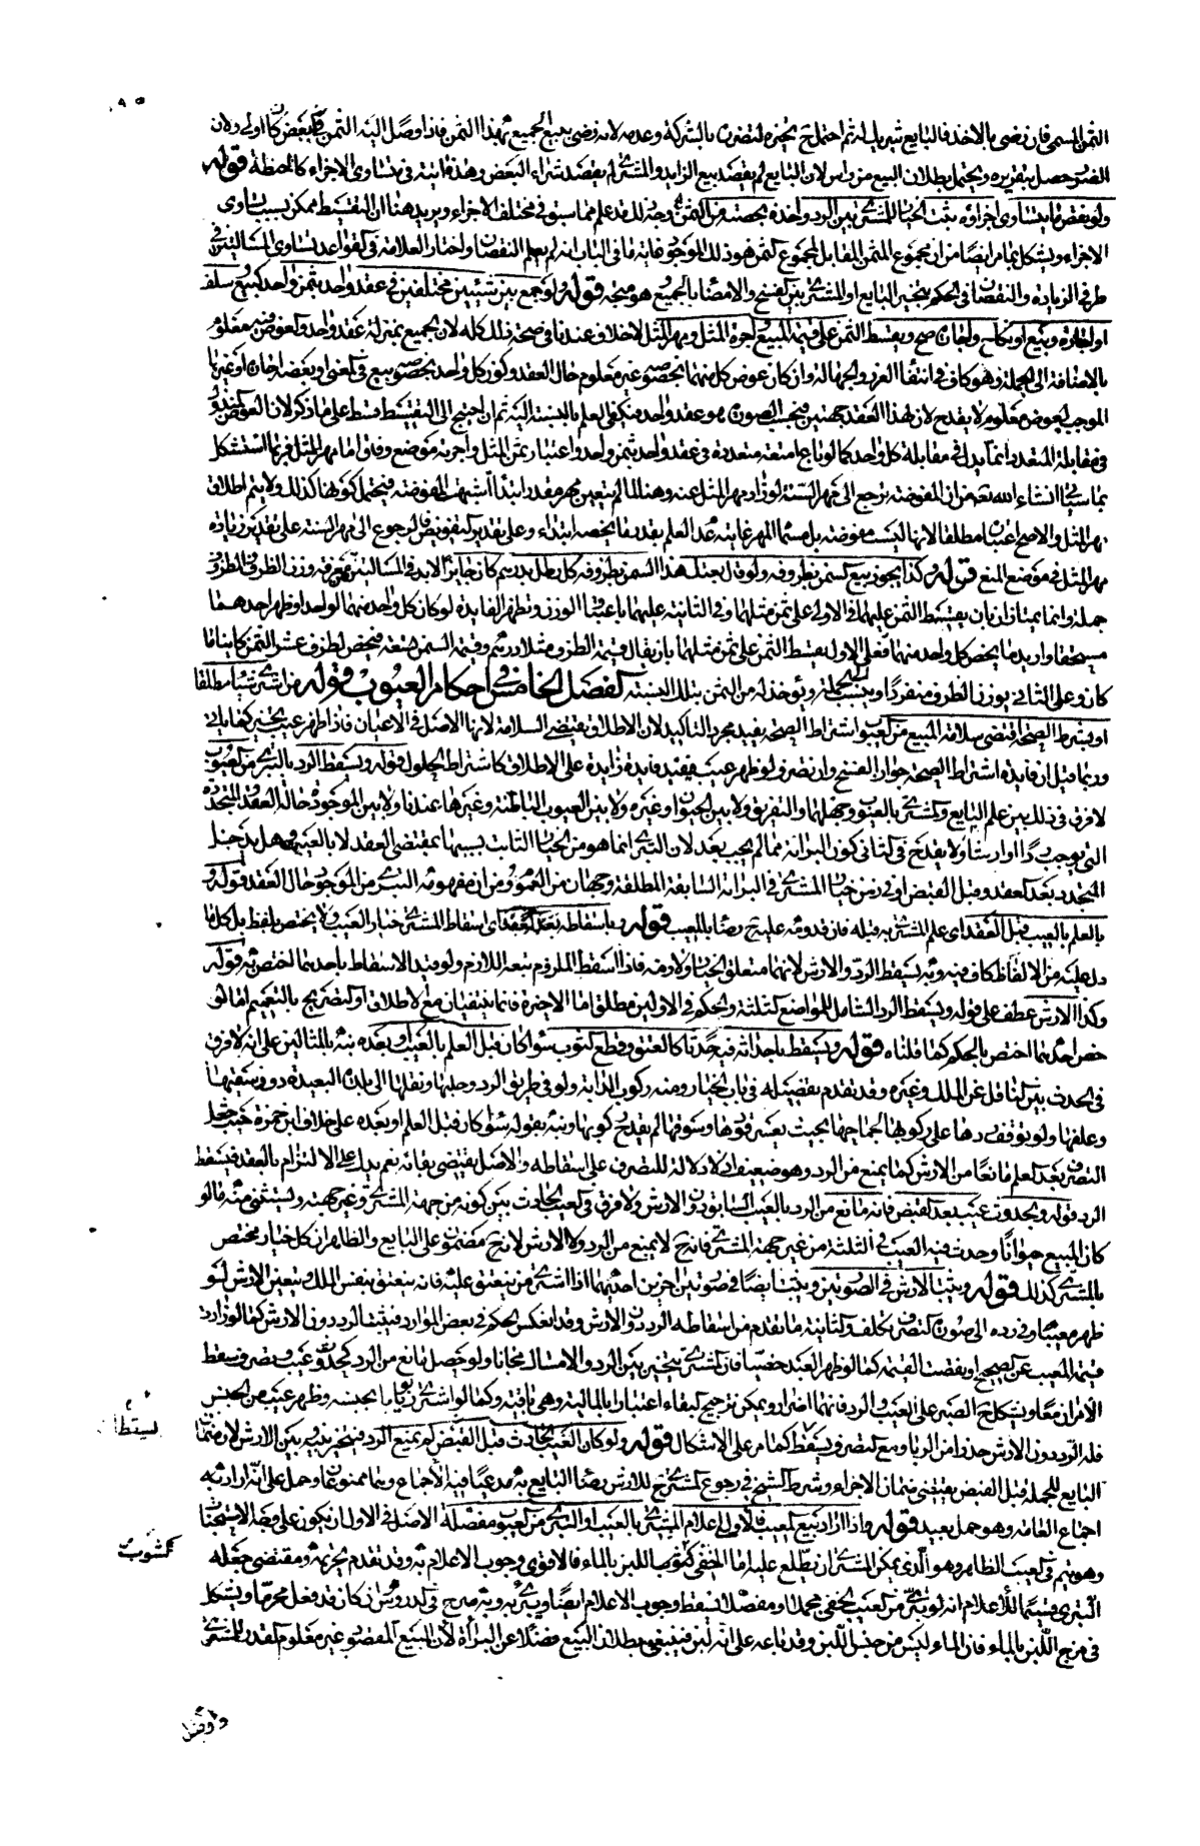 الثمن المسمى فان رضى بالاخذ فالبايع شريك له ثم احتمل تخيره لتضرره بالشركة وعدمه لانه رضى ببيع الجميع بهذا الثمن فاذا وصل اليه الثمن في بعضه كان اولى ولان
الضرر حصل بتقريره ويحتمل بطلان البيع من راس لان البايع لم يقصد بيع الزايد والمشترى لم يقصد شراء البعض وهذه ثابتة في متساوى الاجزاء كالحنطة قوله
ولو نقص ما يتساوى اجزاؤه يثبت الخيار للمشترى بين الرد واخذه بحصته من الثمن وجه ذلك قد علم مما سبق في مختلف الاجزاء ويزيد هنا ان التقسيط ممكن بسبب تساوى
الاجزاء ويشكل بما مر ايضا من ان مجموع المثمن المقابل لمجموع الثمن هو ذلك الموجود غاية ما في الباب انه لم يعلم النقصان واختار العلامة في القواعد تساوى المسألتين في
طرفى الزيادة والنقصان في الحكم بتخيير البايع او المشترى بين الفسخ والامضاء بالجميع وهو متجه قوله ولو جمع بين شيئين مختلفين في عقد واحد بثمن واحد كبيع وسلف
او اجارة وبيع او نكاح واجارة صح ويقسط الثمن على قيمة المبيع واجرة المثل ومهر المثل لا خلاف عندنا في صحة ذلك كله لان الجميع بمنزلة عقد واحد والعوض فيه معلوم
بالاضافة الى الجملة وهو كاف في انتفاء الغرر والجهالة وان كان عوض كل منهما بخصوصه غير معلوم حال العقد وكون كل واحد بخصوصه بيع في المعنى او بعضه اجارة او غيرها
الموجب لعوض معلوم لا يقدح لان لهذا العقد جهتين فبحسب الصورة هو عقد واحد فيكفى العلم بالنسبة اليه ثم ان احتيج الى التقسيط قسط على ما ذكر لان العوض المبذول
في مقابلة المتعدد انما بذل في مقابلة كل واحد كما لو باع امتعة متعددة في عقد واحد بثمن واحد واعتبار ثمن المثل واجرته موضع وفاق اما مهر المثل فربما استشكل
بما سيأتى انشاء الله تعالى من ان المفوضة يرجع الى مهر السنة لو زاد مهر المثل عنه وهنا لما لم يتعين مهر مقدر ابتداء اشبهت المفوضة فيحتمل كونها كذلك ولا يتم اطلاق
مهر المثل والاصح اعتباره مطلقا لانها ليست مفوضة بل مسماة المهر غايته عدم العلم بقدر ما يخصه ابتداء وعلى تقدير التفويض فالرجوع الى مهر السنة على تقدير زيادة
مهر المثل في موضع المنع قوله وكذا يجوز بيع السمن بظروفه ولو قال بعتك هذا السمن بظروفه كل رطل بدرهم كان جايزا لا بد في المسألتين من معرفة وزن الظرف والمظروف
جملة وانما يمتازان بان يقسط الثمن عليهما في الاولى على ثمن مثلهما وفي الثانية عليهما باعتبار الوزن وتظهر الفايدة لو كان كل واحد منهما لواحد او ظهر احدهما
مستحقا واريد ما يخص كل واحد منهما فعلى الاول يقسط الثمن على ثمن مثلهما بان يقال قيمة الظرف مثلا درهم وقيمة السمن تسعة فيخص الظرف عشر الثمن كاينا ما
كان وعلى الثانى يوزن الظرف منفردا وينسب الى الجملة ويؤخذ له من الثمن بتلك النسبة الفصل الخامس في احكام العيوب قوله من اشترى شيئا مطلقا
او بشرط الصحة اقتضى سلامة المبيع من العيوب اشتراط الصحة يفيد مجرد التاكيد لان الاطلاق يقتضى السلامة لانها الاصل في الاعيان فاذا ظهر عيب تخير كما يأتى
وربما قيل ان فايدة اشتراط الصحة جواز الفسخ وان تصرف لو ظهر عيب فيفيد فايدة زايدة على الاطلاق كاشتراط الحلول قوله ويسقط الرد بالتبرى من العيوب
لا فرق في ذلك بين علم البايع والمشترى بالعيوب وجهلهما والتفريق ولا بين الحيوان وغيره ولا بين العيوب الباطنة وغيرها عندنا ولا بين الموجودة حالة العقد والمتجددة
التى يوجب ردا او ارشا ولا يقدح في الثانى كون البرائة مما لم يجب بعد لان التبرى انما هو من الخيار الثابت بسببها بمقتضى العقد لا بالعيب وهل يدخل
المتجدد بعد العقد وقبل القبض او في زمن خيار المشترى في البرائة السابقة المطلقة وجهان من العموم ومن ان مفهومه التبرى من الموجود حال العقد قوله و
بالعلم بالعيب قبل العقد اى علم المشترى به قبله فان قدومه عليه رضا بالمعيب قوله وباسقاطه بعد العقد اى اسقاط المشترى خيار العيب ولا يختص بلفظ بل كل ما
دل عليه من الالفاظ كاف فيه وبه يسقط الرد والارش لانهما متعلق الخيار ولازمه فاذا اسقط الملزوم تبعه اللازم ولو قيد الاسقاط باحدهما اختص به قوله
وكذا الارش عطف على قوله ويسقط الرد الشامل للمواضع الثلثة والحكم في الاولين مطلق اما الاخيرة فانما ينتفيان مع الاطلاق او التصريح بالتعميم اما لو
خص احدهما اختص بالحكم كما قلناه قوله ويسقط باحداثه فيه حدثا كالعتق وقطع الثوب سواء كان قبل العلم بالعيب او بعده نبه بالمثالين على انه لا فرق
في الحدث بين الناقل عن الملك وغيره وقد تقدم تفصيله في باب الخيار ومنه ركوب الدابة ولو في طريق الرد وحلبها ونقلها الى البلد البعيدة دون سقيها
وعلفها ولو توقف ردها على ركوبها لجماحها بحيث يعسر قودها وسوقها لم يقدح ركوبها ونبه بقوله سواء كان قبل العلم او بعده على خلاف ابن حمزة حيث جعل
التصرف بعد العلم مانعا من الارش كما يمنع من الرد وهو ضعيف اذ لا دلالة للتصرف على اسقاطه والاصل يقتضى بقائه نعم يدل على الالتزام بالعقد فيسقط
الرد قوله وبحدوث عيب بعد القبض فانه مانع من الرد بالعيب السابق دون الارش ولا فرق في العيب الحادث بين كونه من جهة المشترى وغير جهته ويستثنى منه ما لو
كان المبيع حيوانا وحدث فيه العيب في الثلثة من غير جهة المشترى فانه لا يمنع من الرد ولا الارش لانه مضمون على البايع والظاهر ان كل خيار مختص
بالمشترى كذلك قوله ويثبت الارش في الصورتين ويثبت ايضا في صورتين اخريين احديهما اذا اشترى من ينعتق عليه فانه ينعتق بنفس الملك ويتعين الارش لو
ظهر معيبا وفي رده الى صورة التصرف تكلف والثانية ما تقدم من اسقاطه الرد دون الارش وقد انعكس الحكم في بعض الموارد فيثبت الرد دون الارش كما لو زادت
قيمة المعيب عن الصحيح او نقصت القيمة كما لو ظهر العبد خصيا فان المشترى يتخير بين الرد والامساك مجانا ولو حصل مانع من الرد كحدوث عيب وتصرف سقط
الامران معا ويشكل الصبر على العيب والرد فانهما اضرار ويمكن ترجيح البقاء اعتبارا بالمالية وهى باقية وكما لو اشترى ربويا بجنسه وظهر عيب من الجنس
فله الرد دون الارش حذرا من الربا ومع التصرف ويسقط كما مر على الاشكال قوله ولو كان العيب الحادث قبل القبض لم يمنع الرد فيتخير بينه وبين الارش لان ضمان
البايع للجملة قبل القبض يقتضى ضمان الاجزاء وشرط الشيخ في رجوع المشترى للارش رضا البايع به مدعيا فيه الاجماع وربما منع وحمل على انه اراد به
اجماع العامة وهو حمل بعيد قوله واذا اراد بيع المعيب فالاولى اعلام المشترى بالعيب او التبرى من العيوب مفصلة الاصل في الاول ان يكون على وجه الاستحباب
وهو يتم في العيب الظاهر وهو الذى يمكن المشترى ان يطلع عليه اما الخفى كشوب اللبن بالماء فالاقوى وجوب الاعلام به وقد تقدم تحريمه ومقتضى جعله
التبرى قسيما للاعلام انه لو تبرى من العيب الخفى مجملا او مفصلا سقط وجوب الاعلام ايضا وبه صرح في الدروس وان كان قد فعل محرما ويشكل
في مزج اللبن بالماء فان الماء ليس من جنس اللبن وقد باعه على انه لبن فينبغى بطلان البيع فضلا عن البرأة لان المبيع المقصود غير معلوم القدر للمشترى
يسقط
كشوب